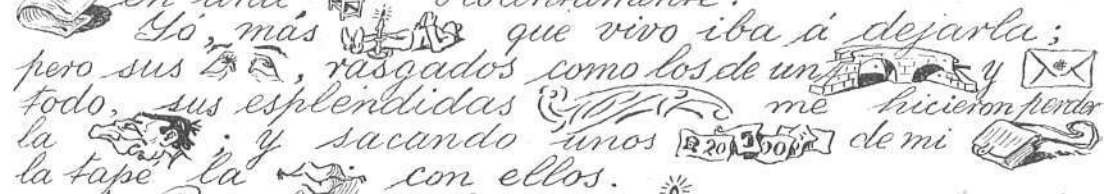 en una
Yó, más que vivo iba á dejarla;
pero sus , rasgados como los de un y
todo, sus espléndidas me hicieron perder
la ; y sacando unos de mi
la tapé la con ellos.